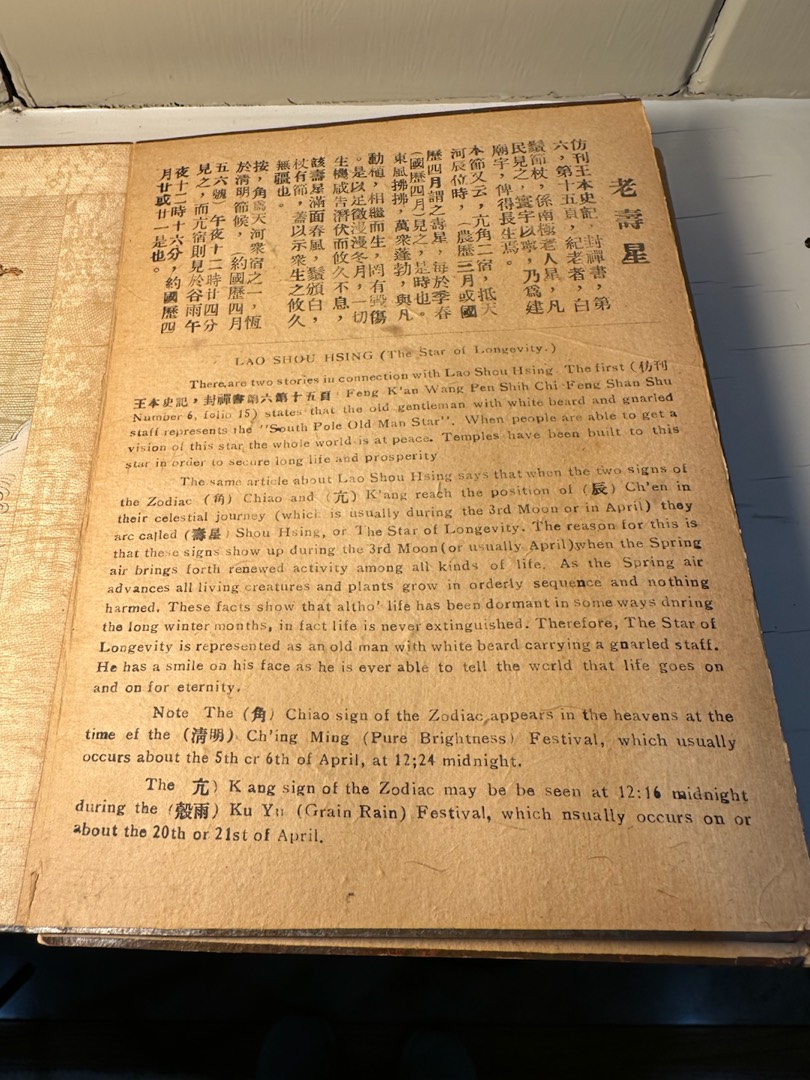 老壽星
仿刊王本史記，封禪書，第
六，第十五頁，紀老者，白
鬚節杖，係南極老人星，凡
民見之，寰宇以寧，乃爲建
廟宇，俾得長生焉。
本節又云，亢角二宿，抵天
河辰位時，(農歷三月或國
歷四月謂之壽星，每於季春
(國歷四月)見之，是時也。
東風拂拂，萬衆蓬勃，與凡
動植，相繼而生，罔有毀傷
。是以足徵漫漫冬月，一切
生機咸告潛伏而攸久不息，
該壽星滿面春風，鬚頒白，
杖有節，蓋以示衆生之攸久
無疆也。
按，角爲天河衆宿之一，恆
於淸明節候，(約國歷四月
五六號)午夜十二時廿四分
見之，而亢宿則見於谷雨午
夜十二時十六分，約國歷四
月廿或廿一是也。
LAO SHOU HSING (The Star of Longevity.)
There are two stories in connection with Lao Shou Hsing The first (仿刊
王本史記，封禪書第六第十五頁 Feng K'an Wang Pen Shih Chi Feng Shan Shu
Number 6, folio 15) states that the old gentleman with white beard and gnarled
staff represents the "South Pole Old Man Star". When people are able to get a
vision of this star the whole world is at peace. Temples have been built to this
star in order to secure long life and prosperity
The same article about Lao Shou Hsing says that when the two signs of
the Zodiac (角) Chiao and (亢) K'ang reach the position of (辰) Ch'en in
their celestial journey (which is usually during the 3rd Moon or in April) they
are called (壽星) Shou Hsing, or The Star of Longevity. The reason for this is
that these signs show up during the 3rd Moon (or usually April) when the Spring
air brings forth renewed activity among all kinds of life. As the Spring air
advances all living creatures and plants grow in orderly sequence and nothing
harmed. These facts show that altho' life has been dormant in some ways dnring
the long winter months, in fact life is never extinguished. Therefore, The Star of
Longevity is represented as an old man with white beard carrying a gnarled staff.
He has a smile on his face as he is ever able to tell the wcrld that life goes on
and on for eternity.
Note The (角) Chiao sign of the Zodiac appears in the heavens at the
time ef the (淸明) Ch'ing Ming (Pure Brightness) Festival, which usually
occurs about the 5th cr 6th of April, at 12;24 midnight.
The 亢) K ang sign of the Zodiac may be be seen at 12:16 midnight
during the (穀雨) Ku Yu (Grain Rain) Festival, which nsually occurs on or
about the 20th or 21st of April.